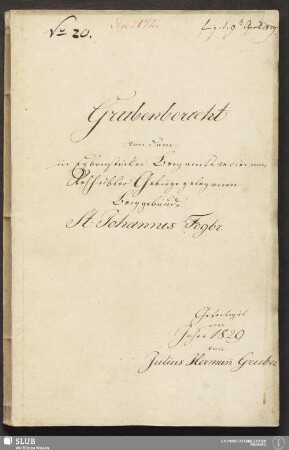 No 20.
Grubenbericht
von dem
in Eybenstocker Bergamtsrevier am
Rehhübler Gebirge gelegenen
Berggebäude
St. Johannes Fdgbr.
Gefertiget
im
Jahre 1829
von
Julius Herman Gruber
SLUB
Wir führen Wissen.